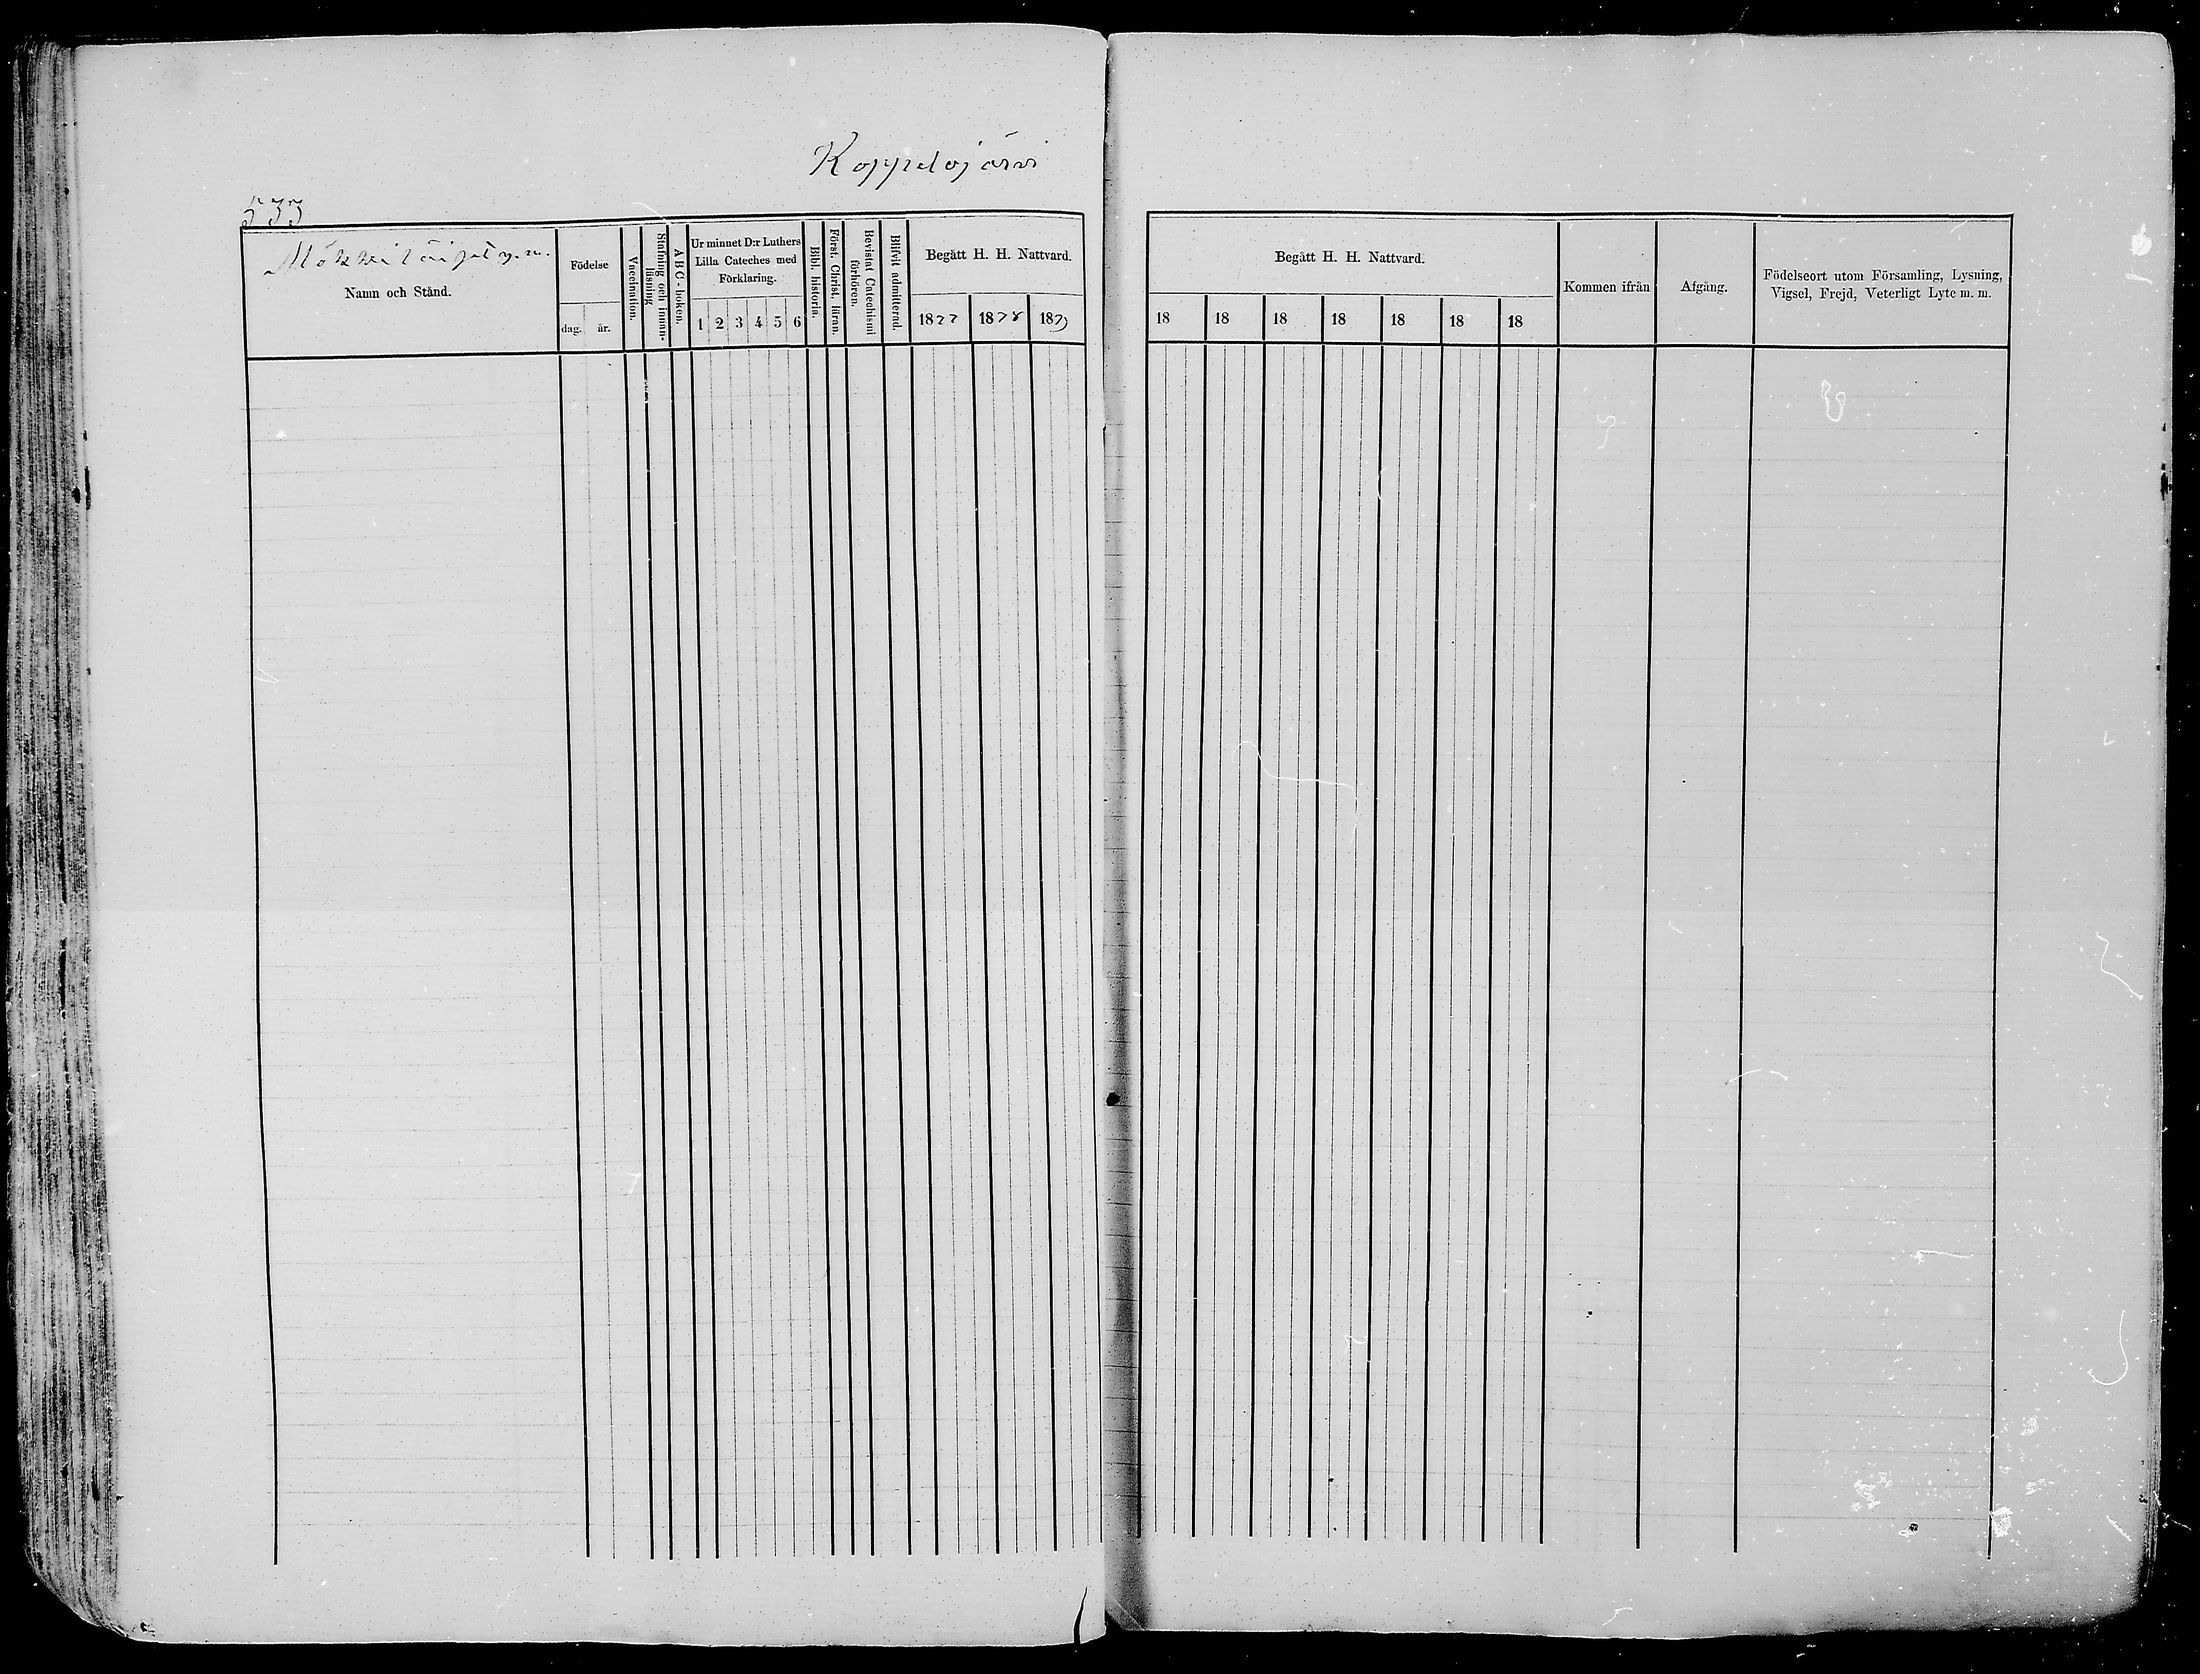 Koppelojärvi
533
Mökkiläisiä m. m.
Namn och Stånd.
Födelse
dag. år.
Vaccination.
Stafning och innan-
läsning
A B C - boken.
Ur minnet D:r Luthers
Lilla Cateches med
Förklaring.
1 2 3 4 5 6
Bibl. historia.
Först. Christ. läran.
Bevistat Catechismi
förhören.
Blifvit admitterad.
Begått H. H. Nattvard.
1877 1878 1879
Begått H. H. Nattvard.
18 18 18 18 18 18 18
Kommen ifrån
Afgång.
Födelseort utom Församling, Lysning,
Vigsel, Frejd, Veterligt Lyte m. m.